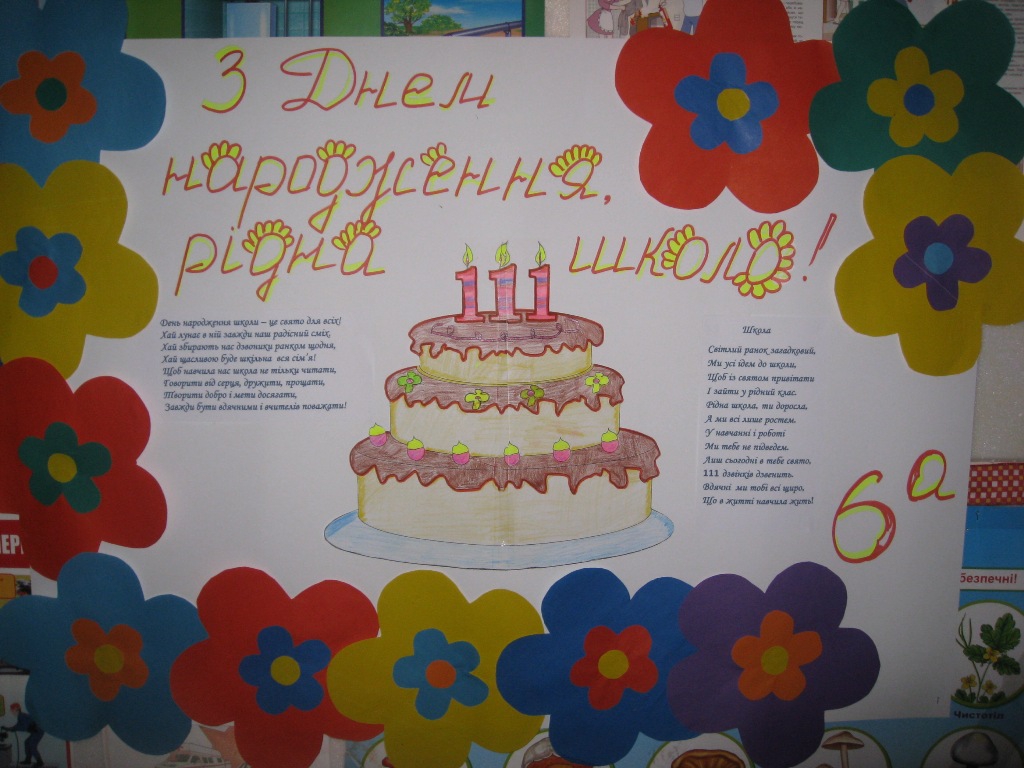 З Днем
народження,
рідна школо!
111
День народження школи – це свято для всіх!
Хай лунає в ній завжди наш радісний сміх,
Хай збирають нас дзвоники ранком щодня,
Хай щасливою буде шкільна вся сім'я!
Щоб навчила нас школа не тільки читати,
Говорити від серця, дружити, прощати,
Творити добро і мети досягати,
Завжди бути вдячними і вчителів поважати!
Школа
Світлий ранок загадковий,
Ми усі ідем до школи,
Щоб із святом привітати
І зайти у рідний клас.
Рідна школа, ти доросла,
А ми всі лише ростем.
У навчанні і роботі
Ми тебе не підведем.
Лиш сьогодні в тебе свято,
111 дзвінків дзвенить.
Вдячні ми тобі всі щиро,
Що в житті навчила жить!
6 а
безпечні!
Чистотіл